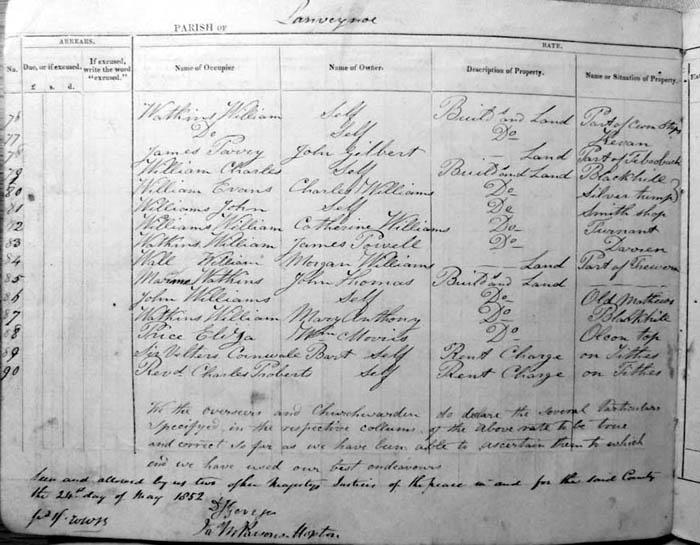 PARISH OF Lanveynoe
ARREARS. RATE.
No. Due, or if excused. If excused, write the word "excused." Name of Occupier Name of Owner. Description of Property. Name or Situation of Property.
£ s. d.
76 Watkins William Self Build.s and Land Part of Cwm
77 Do Self Do
78 James Pavey John Gilbert — Land Part of
79 William Charles Self Build and Land Blackhill
80 William Evans Charles Williams Do Silver tump
81 Williams John Self Do Smith Shop
82 Williams William Catherine Williams Do Turnant
83 Watkins William James Powell Do Darren
84 Will William Morgan Williams — Land Part of Trewern
85 Watkins John Thomas Build.s and Land
86 John Williams Self Do Old Mathews
87 Watkins William Mary Anthony Do Blackhill
88 Price Eliza Wm Morris Do Olcon top
89 Sir Velters Cornwale Bart Self Rent Charge on Tithes
90 Revd Charles Probert Self Rent Charge on Tithes
We the overseers and Churchwarden do declare the several Particulars
Specifyed in the respective collums of the above rate to be true
and correct so far as we have been able to ascertain them to which
end we have used our best endeavours
Seen and allowed by us two of her Majestys Justices of the peace in and for the said County
the 24th day of May 1852